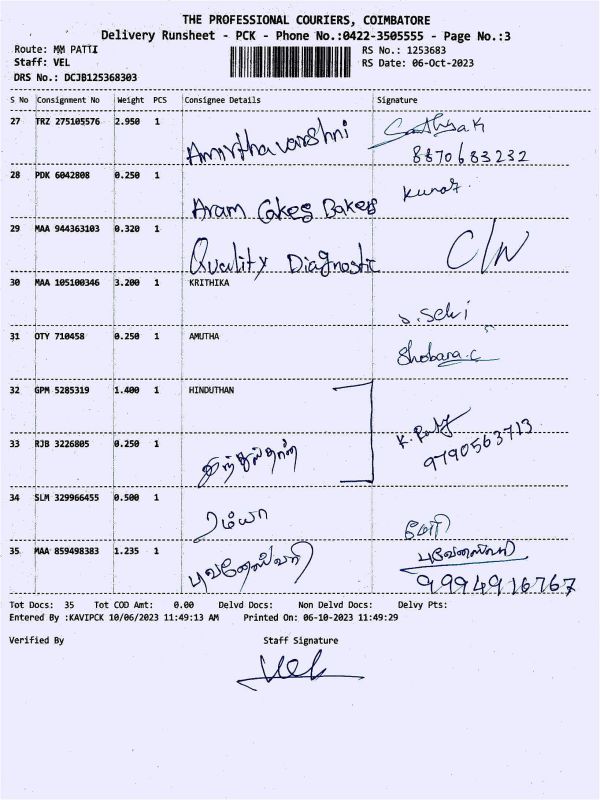 THE PROFESSIONAL COURIERS, COIMBATORE
Delivery Runsheet - PCK - Phone No.:0422-3505555 - Page No.:3
Route: MM PATTI
RS No.: 1253683
Staff: VEL
RS Date: 06-Oct-2023
DRS No.: DCJB125368303
S No Consignment No Weight PCS Consignee Details Signature
27 TRZ 275105576 2.950 1 Amirthavarshni Sathya K
8870683232
28 PDK 6042808 0.250 1 Aram Cakes Bakers Kumar.
29 MAA 944363103 0.320 1 Quality Diagnostic C/N
30 MAA 105100346 3.200 1 KRITHIKA S. Selvi
31 OTY 710458 0.250 1 AMUTHA Shobana.C
32 GPM 5285319 1.400 1 HINDUTHAN
33 RJB 3226805 0.250 1 இந்துஸ்தான் K.
9790563713
34 SLM 329966455 0.500 1 ரம்யா மேரி
35 MAA 859498383 1.235 1 புவனேஸ்வரி புவனேஸ்வரி
9994916767
Tot Docs: 35 Tot COD Amt: 0.00 Delvd Docs: Non Delvd Docs: Delvy Pts:
Entered By :KAVIPCK 10/06/2023 11:49:13 AM Printed On: 06-10-2023 11:49:29
Verified By Staff Signature
Vel